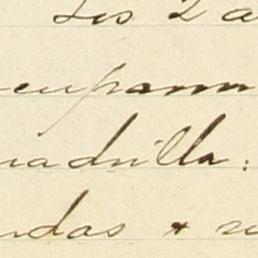 Los 2 a
cuparon
uadrilla:
ndas + su